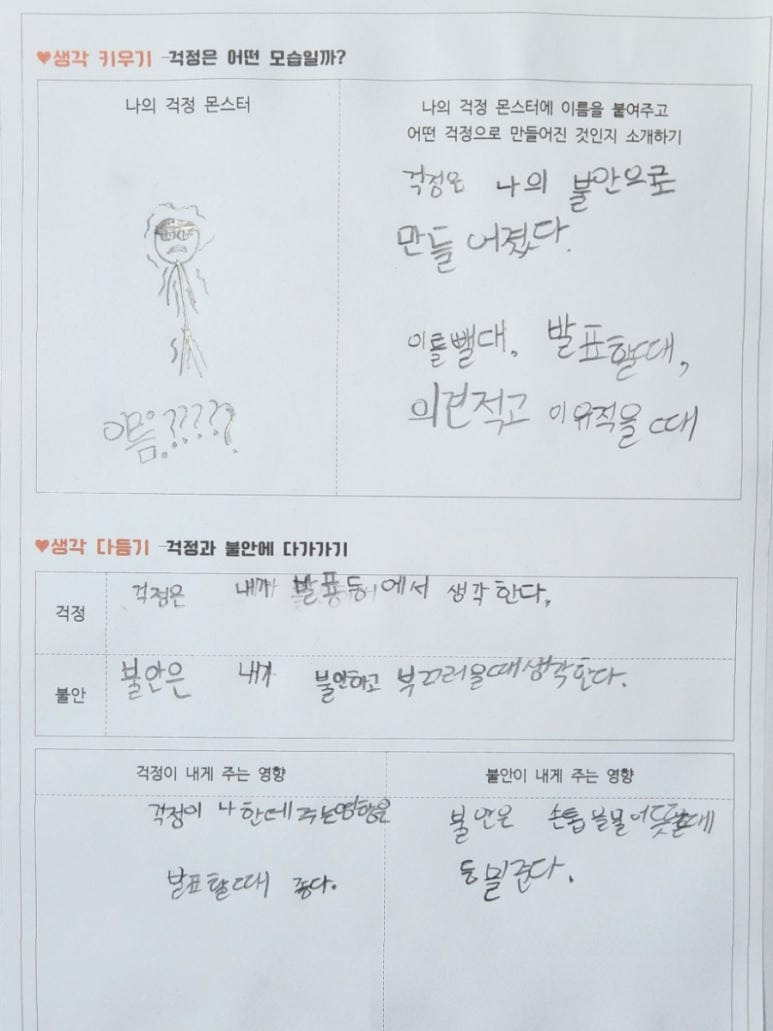 ♥생각 키우기 -걱정은 어떤 모습일까?
나의 걱정 몬스터
나의 걱정 몬스터에 이름을 붙여주고
어떤 걱정으로 만들어진 것인지 소개하기
걱정은 나의 불안으로
만들어졌다.
이를뺄대, 발표할때,
의견적고 이유적을 때
이름?????
♥생각 다듬기 -걱정과 불안에 다가가기
걱정
걱정은 내가 발표등에서 생각한다,
불안
불안은 내가 불안하고 부끄러울때생각한다.
걱정이 내게 주는 영향
걱정이 나한테 주는영향은
발표할때 준다.
불안이 내게 주는 영향
불안은 손톱
준다.